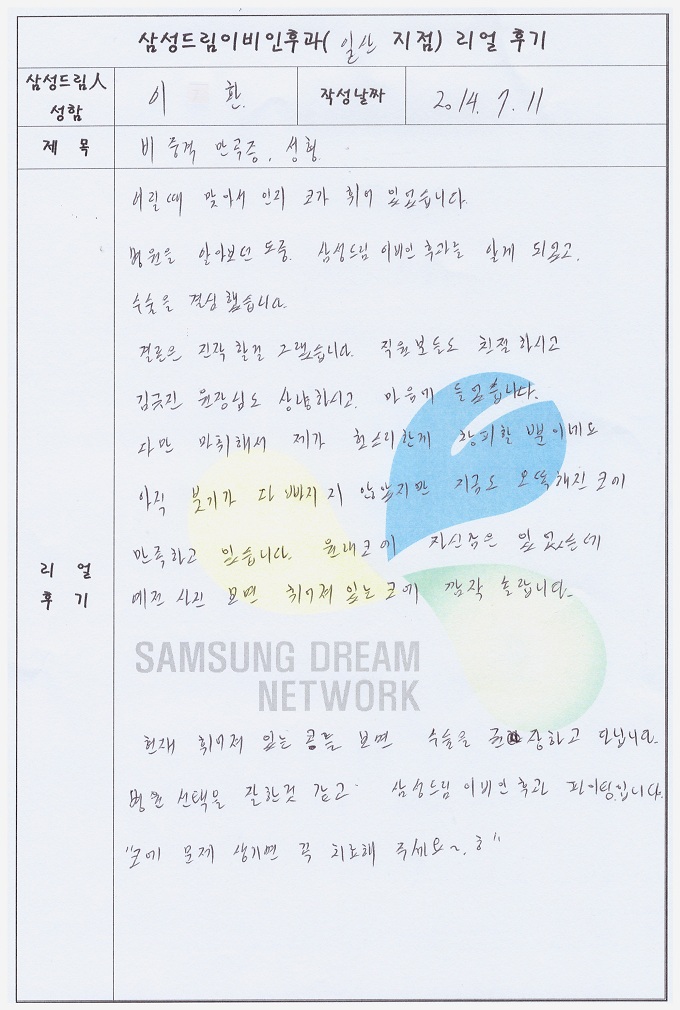 삼성드림이비인후과( 일산 지점) 리얼 후기
삼성드림人 성함
이 환
작성날짜
2014. 7. 11
제 목
비 중격 만곡증, 성형
리 얼 후 기
어릴때 맞아서 인지 코가 휘어 있었습니다.
병원을 알아보던 도중. 삼성드림 이비인 후과를 알게 되었고,
수술을 결심 했습니다.
결론은 진작 할걸 그랬습니다. 직원분들도 친절 하시고
원장님도 상냥하시고, 마음에 들었습니다.
다만 마취해서 제가 헛소리한게 창피할 뿐이네요
아직 붓기가 다 빠지지 않았지만 지금도 오똑해진 코에
만족하고 있습니다. 원래코에 자신감은 있었는데
예전 사진 보면 휘어져 있는 코에 깜작 놀랍니다.
SAMSUNG DREAM
NETWORK
현재 휘어져 있는 콩를 보면 수술을 권장하고 다닙니다.
병원 선택을 잘한것 같고. 삼성드림 이비인 후과 파이팅입니다.
"코에 문제 생기면 꼭 치료해 주세요~. ㅎ"